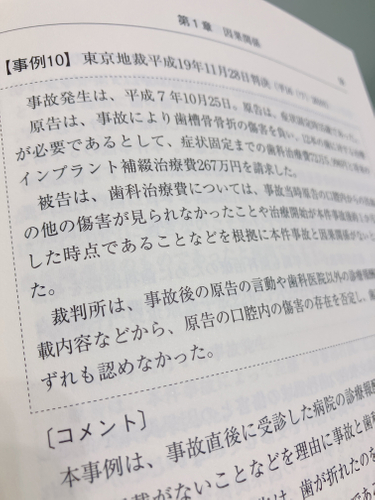 第1章　因果関係
【事例10】東京地裁平成19年11月28日判決
事故発生は、平成7年10月25日。原告は、症状固定
原告は、事故により歯槽骨骨折の傷害を負い、
が必要であるとして、症状固定までの歯科治療費
インプラント補綴治療費267万円を請求した。
被告は、歯科治療費については、事故当時原告の口腔内
の他の傷害が見られなかったことや治療開始が本件事故後
した時点であることなどを根拠に本件事故と因果関係がないと
た。
裁判所は、事故後の原告の言動や歯科医院以外の診療報酬
載内容などから、原告の口腔内の傷害の存在を否定し、
ずれも認めなかった。
〔コメント〕
本事例は、事故直後に受診した病院の診療報酬
載がないことなどを理由に事故と歯科
は、歯が折れたのを